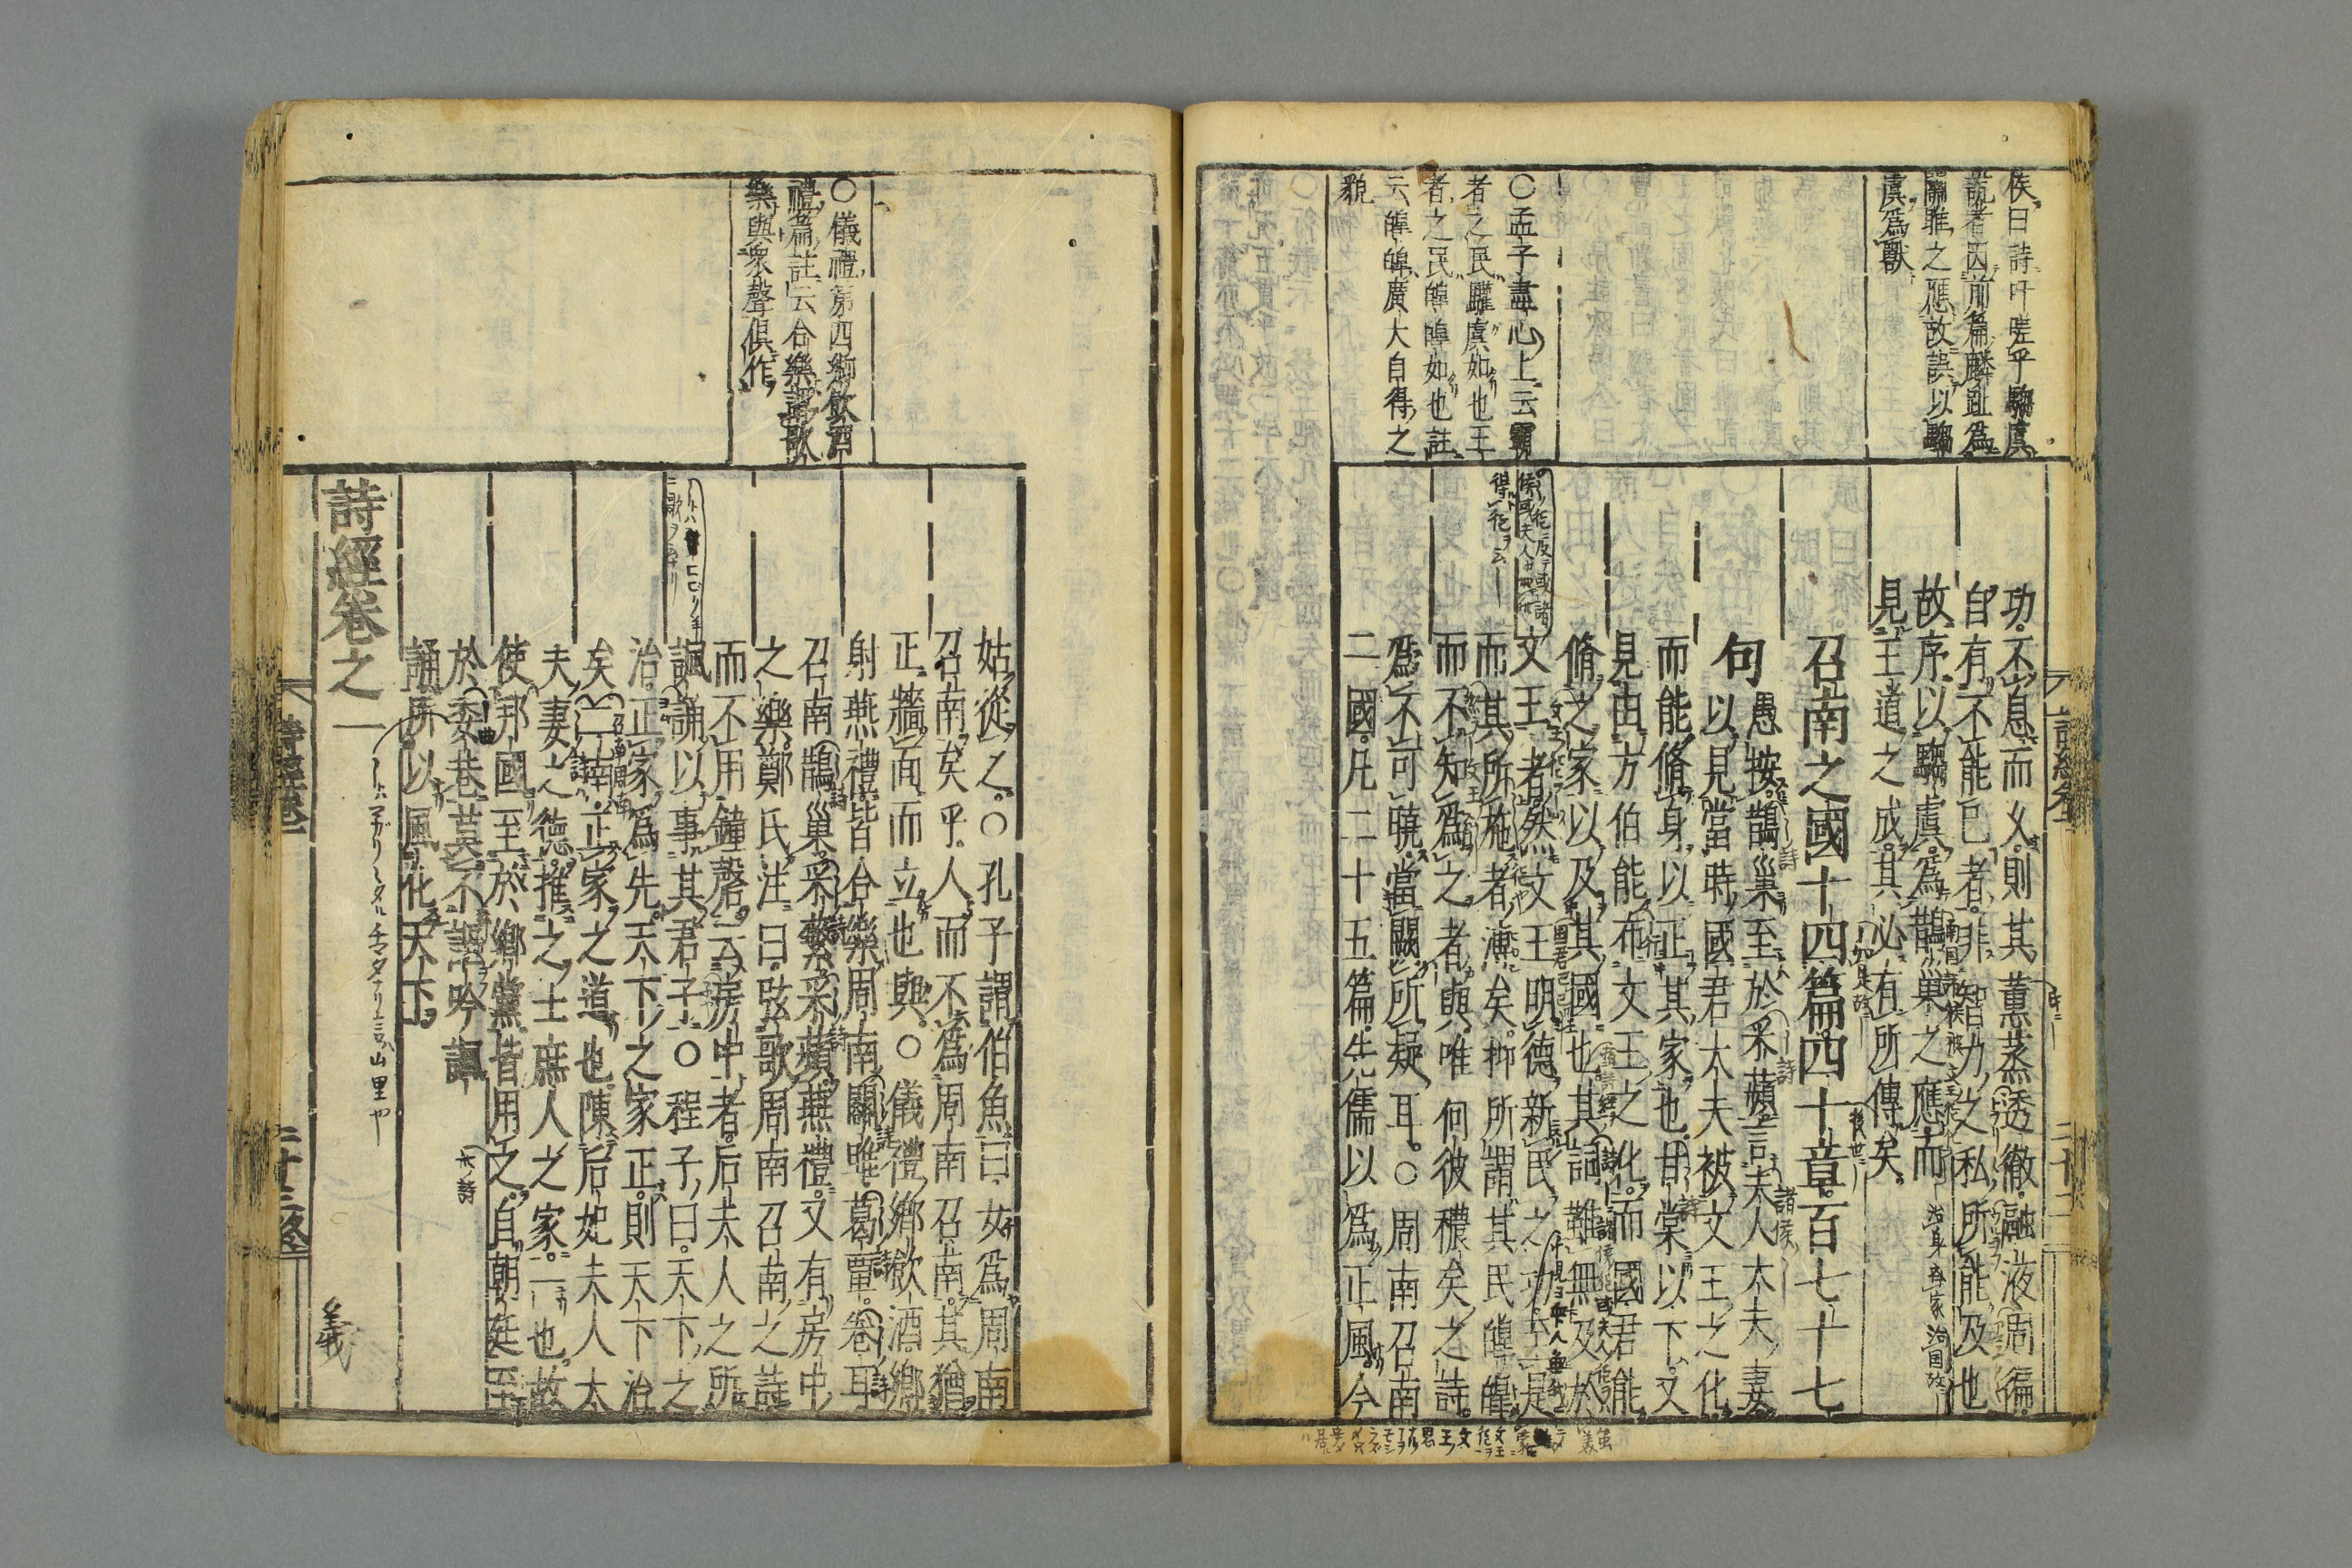 侯曰詩吁嗟乎騶虞
說者因前篇麟趾爲
關雎之應故誤以騶
虞爲獸
○孟子盡心上云霸
者之民驩虞如也王
者之民皥皥如也註
云皥皥廣大自得之
貌
功不息而久則其薰蒸透徹融液周徧
自有不能已者非智力之私所能及也
故序以騶虞爲鵲巢之應而
見王道之成其必有所傳矣
召南之國十四篇四十章百七十七
句
愚按鵲巢至於采蘋言夫人大夫妻
以見當時國君大夫被文王之化
而能脩身以正其家也甘棠以下又
見由方伯能布文王之化而國君能
脩之家以及其國也其詞雖無及於
文王者然文王明德新民之功至是
而其所施者溥矣抑所謂其民皥皥
而不知爲之者與唯何彼穠矣之詩
爲不可曉當闕所疑耳○周南召南
二國凡二十五篇先儒以爲正風今
詩經卷一
二十二
○儀禮第四鄉飲酒
禮篇註云合樂謂歌
樂與衆聲俱作
姑從之○孔子謂伯魚曰女爲周南
召南矣乎人而不爲周南召南其猶
正牆面而立也與○儀禮鄉飲酒鄉
射燕禮皆合樂周南關雎葛覃卷耳
召南鵲巢采蘩采蘋燕禮又有房中
之樂鄭氏注曰弦歌周南召南之詩
而不用鐘磬云房中者后夫人之所
諷誦以事其君子○程子曰天下之
治正家爲先天下之家正則天下治
矣二南正家之道也陳后妃夫人大
夫妻之德推之士庶人之家一也故
使邦國至於鄉黨皆用之自朝廷至
於委巷莫不謳吟諷
誦所以風化天下
詩經卷之一
詩經卷一
二十三終